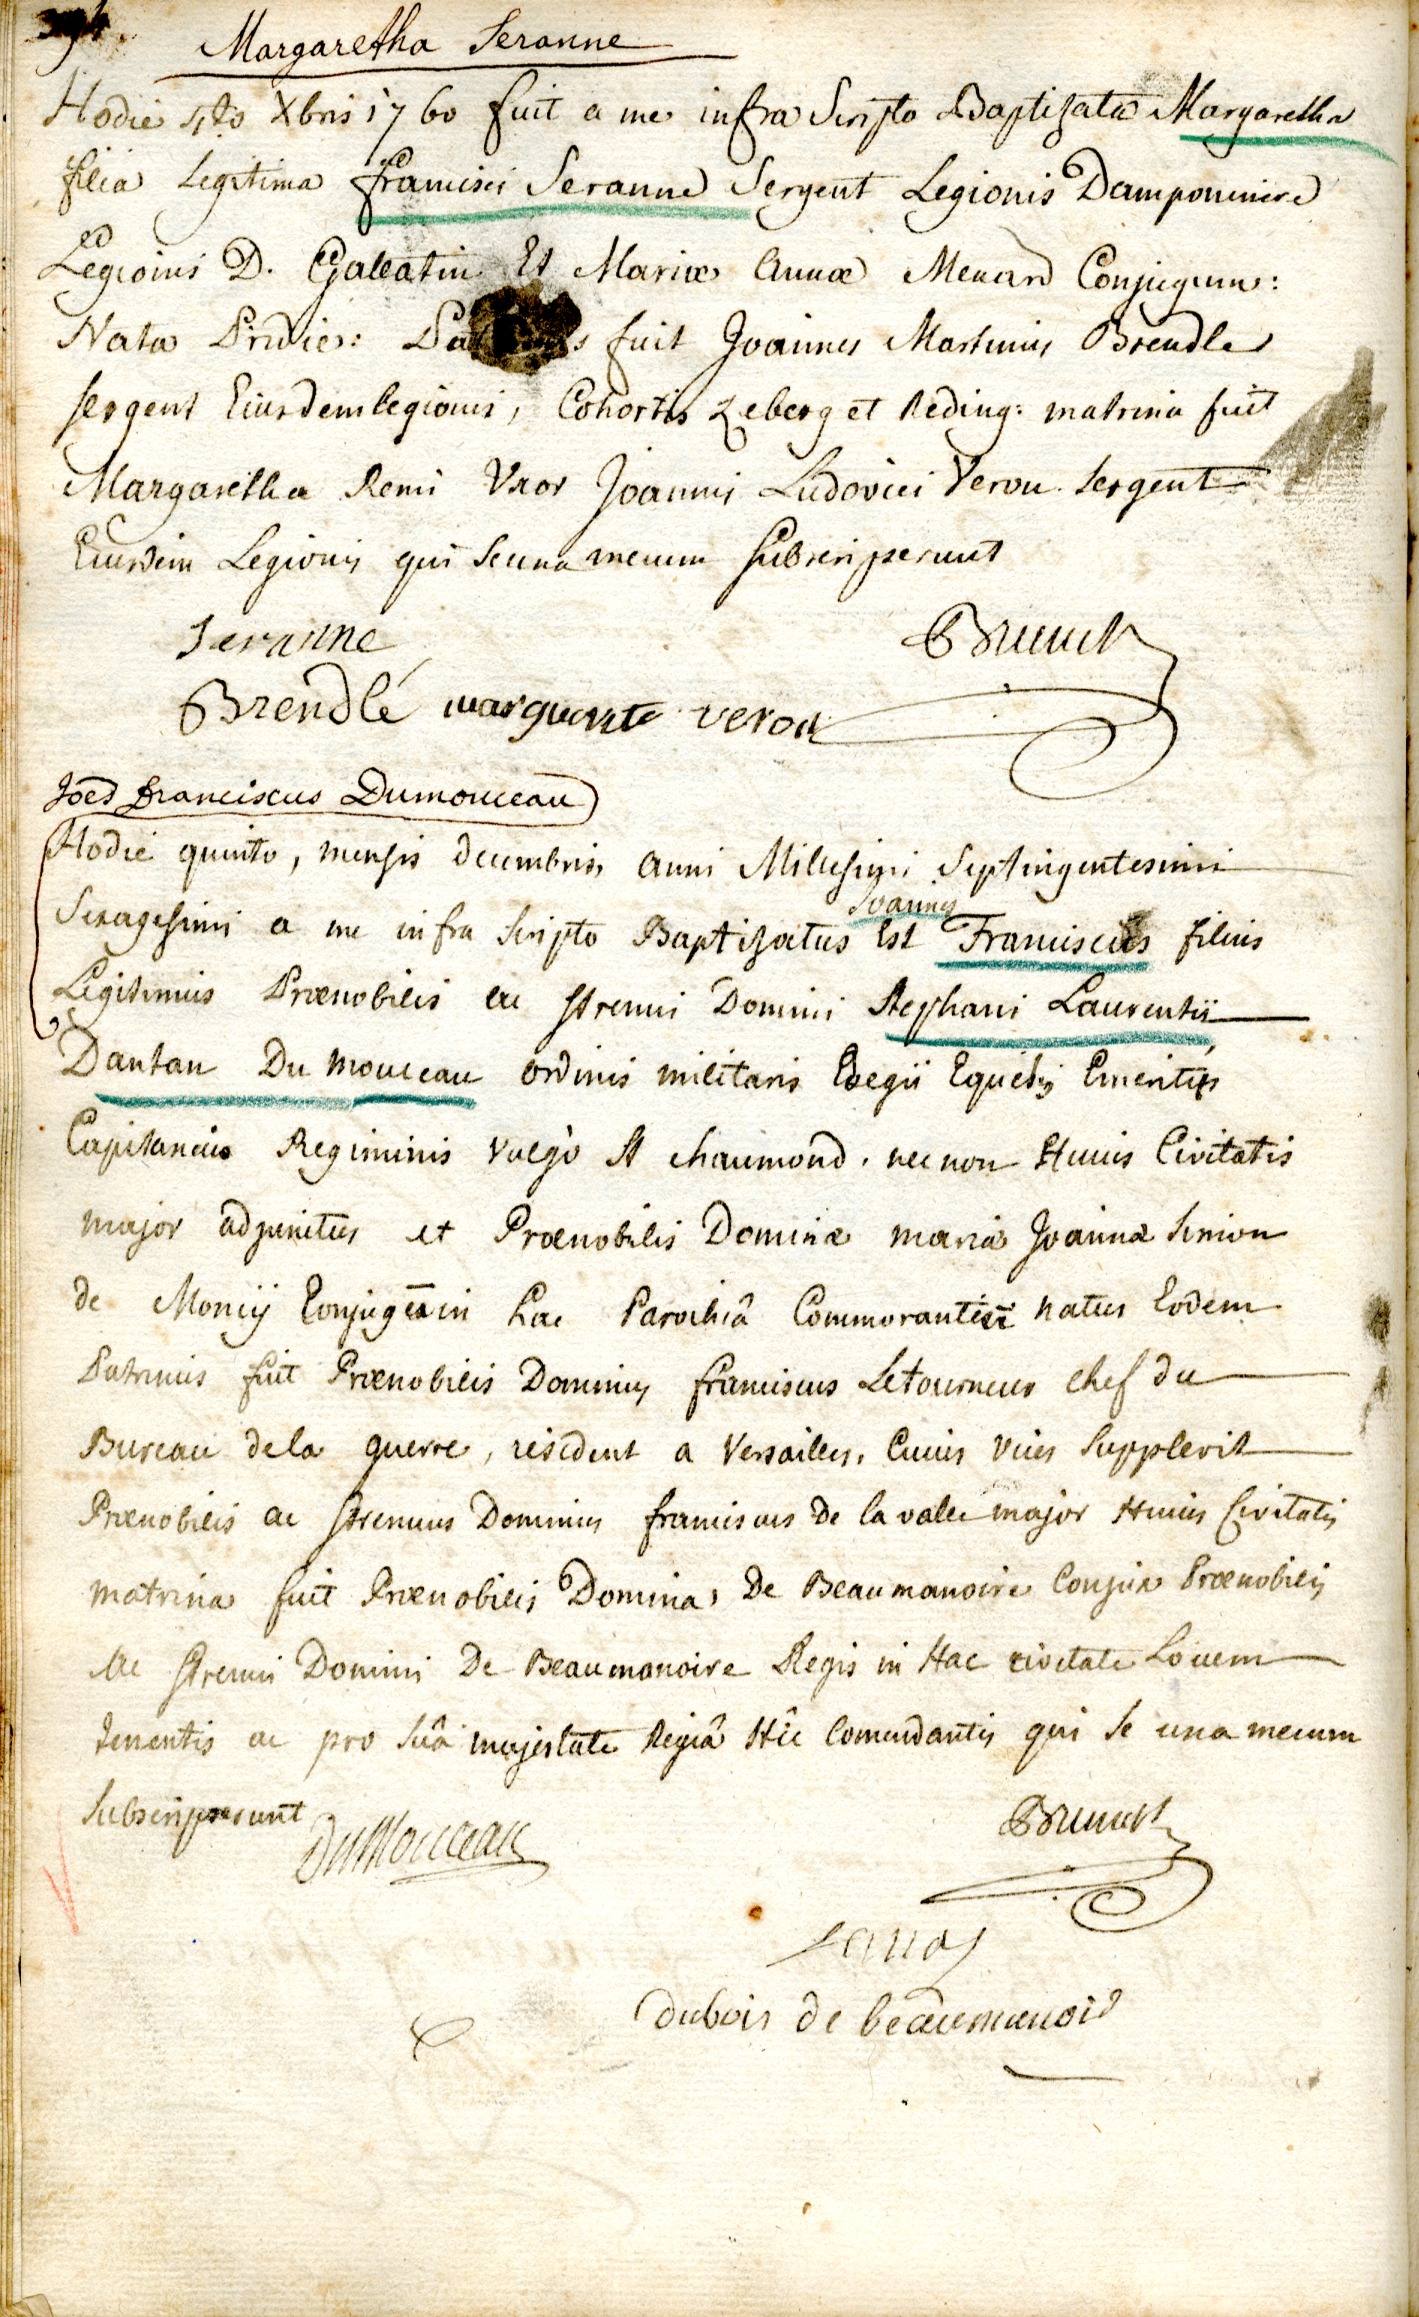 394.
Margaretha Seranne
Hodie 4to Xbris 1760 fuit a me infra Scripto Baptisata Margaretha
filia Legitima francisci Seranne Sergent Legionis
Legionis D. Gallatin Et Mariæ Annæ Menard Conjugum:
Nata Pridie: fuit Joannes Martinus Brendle
sergent Eiusdem legionis, Cohortis Zeberg et Reding: matrina fuit
Margaretha Remi Uxor Joannis Ludovici Verou Sergent
Eiusdem Legionis qui se una mecum subscripserunt
Seranne Brunck
Brendlé marguerite verou
Joês franciscus Dumouceau
Hodie quinto, mensis decembris, anni Millesimi Septingentesimi
Joannes
Sexagesimi a me infra scripto Baptisatus Est Franciscus filius
Legitimus Prænobilis ac strenui Domini Stephani Laurentii
Dantan Du mouceau ordinis militaris Regii Equitis Emeritus
Capitaneus Regiminis vulgo St chaumond, nec non Huius Civitatis
major adjunctus et Prænobilis Dominæ mariæ Joannæ Simon
de Moncij Conjugum in hac Parochiâ Commorantium natus Eodem
Patrinus fuit Prænobilis Dominus franciscus Letourneur chef du
Bureau de la guerre, resident a Versailles, Cuius vices Supplevit
Prænobilis ac strenuus Dominus franciscus de la valee major Huius Civitatis
matrina fuit Prænobilis Domina, De Beaumanoire Conjux Prænobilis
Ac strenui Domini De Beaumanoire Regis in Hac civitate Locum
tenentis ac pro Suâ majestate Regiâ Hîc Comendantis qui Se una mecum
Subscripserunt DuMouceau Brunck
Dubois de beaumanoir